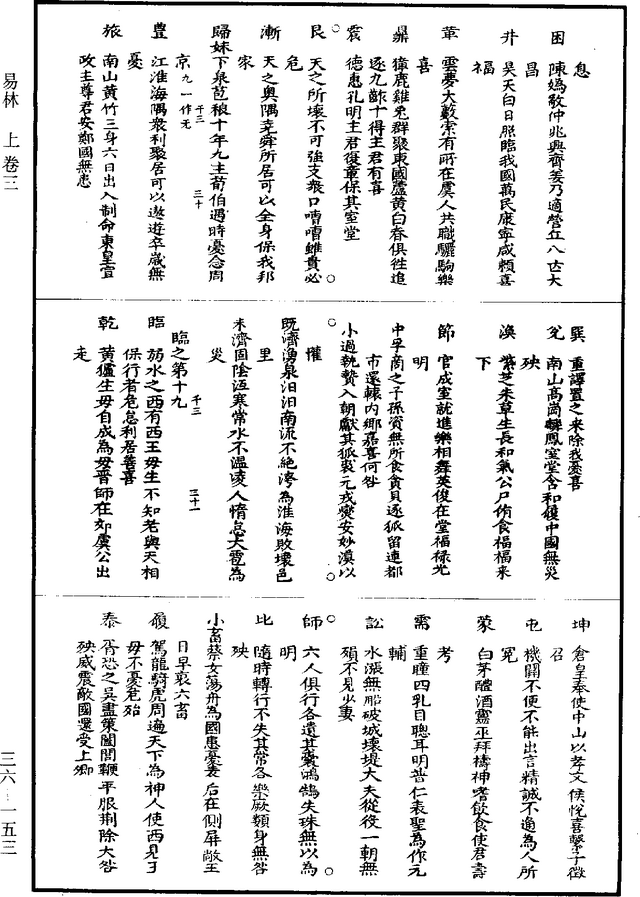 息
困 陳媯敬仲兆興齊姜乃適營丘八世大
昌
井 昊天白日照臨我國萬民康寧咸賴嘉
福
革 雲夢大藪索有所在虞人共職驪駒樂
喜
鼎 獐鹿雞兔群聚東國盧黃白脊俱往追
逐九齡十得主君有喜
震 德惠孔明主君復章保其室堂
艮 天之所壞不可強支眾口嘈嘈雖貴必
危
漸 天之奧隅堯舜所居可以全身保我邦
家
歸妹下泉苞稂十年九主荀伯遇時憂念周
京 九一作无 千三 三十
豐 江淮海隅眾利聚居可以遨遊卒歲無
憂
旅 南山黃竹三身六目出入制命東皇宣
政主尊君安鄭國無患
巽 重譯置之來除我憂喜
兌 南山高崗麟鳳室堂含和履中國無災
殃
渙 紫芝朱草生長和氣公尸侑食福祿來
下
節 官成室就進樂相舞英俊在堂福祿光
明
中孚商之子孫資無所食貪貝逐狐留連都
市還轅內鄉嘉喜何咎
小過執贄入朝獻其狐裘元戎燮安沙漠以
權
既濟湧泉汨汨南流不絕洿為淮海敗壞邑
里
未濟固陰沍寒常水不溫凌人惰怠大雹為
災
臨之第十九 千三 三十一
臨 弱水之西有西王母生不知老與天相
保行者危怠利居善喜
乾 黃獹生母自成為母晉師在郊虞公出
走
坤 倉皇奉使中山以孝文侯悅喜擊子徵
召
屯 機關不便不能出言精誠不通為人所
冤
蒙 白茅醴酒靈巫拜禱神嗜飲食使君壽
考
需 重瞳四乳目聰耳明普仁表聖為作元
輔
訟 水漲無船破城壞堤大夫從役一朝無
殞不見少妻
師 六人俱行各遺其囊鴻鵠失珠無以為
明
比 隨時轉行不失其常各樂厥類身無咎
殃
小畜蔡女蕩舟為國患憂妻后在側屏敝王
目旱衰六畜
履 駕龍騎虎周遍天下為神人使西見王
母不憂危殆
泰 胥恐之吳盡策闔閭鞭平服荊除大咎
殃威震敵國還受上卿
易林 上卷三
三六-一五三